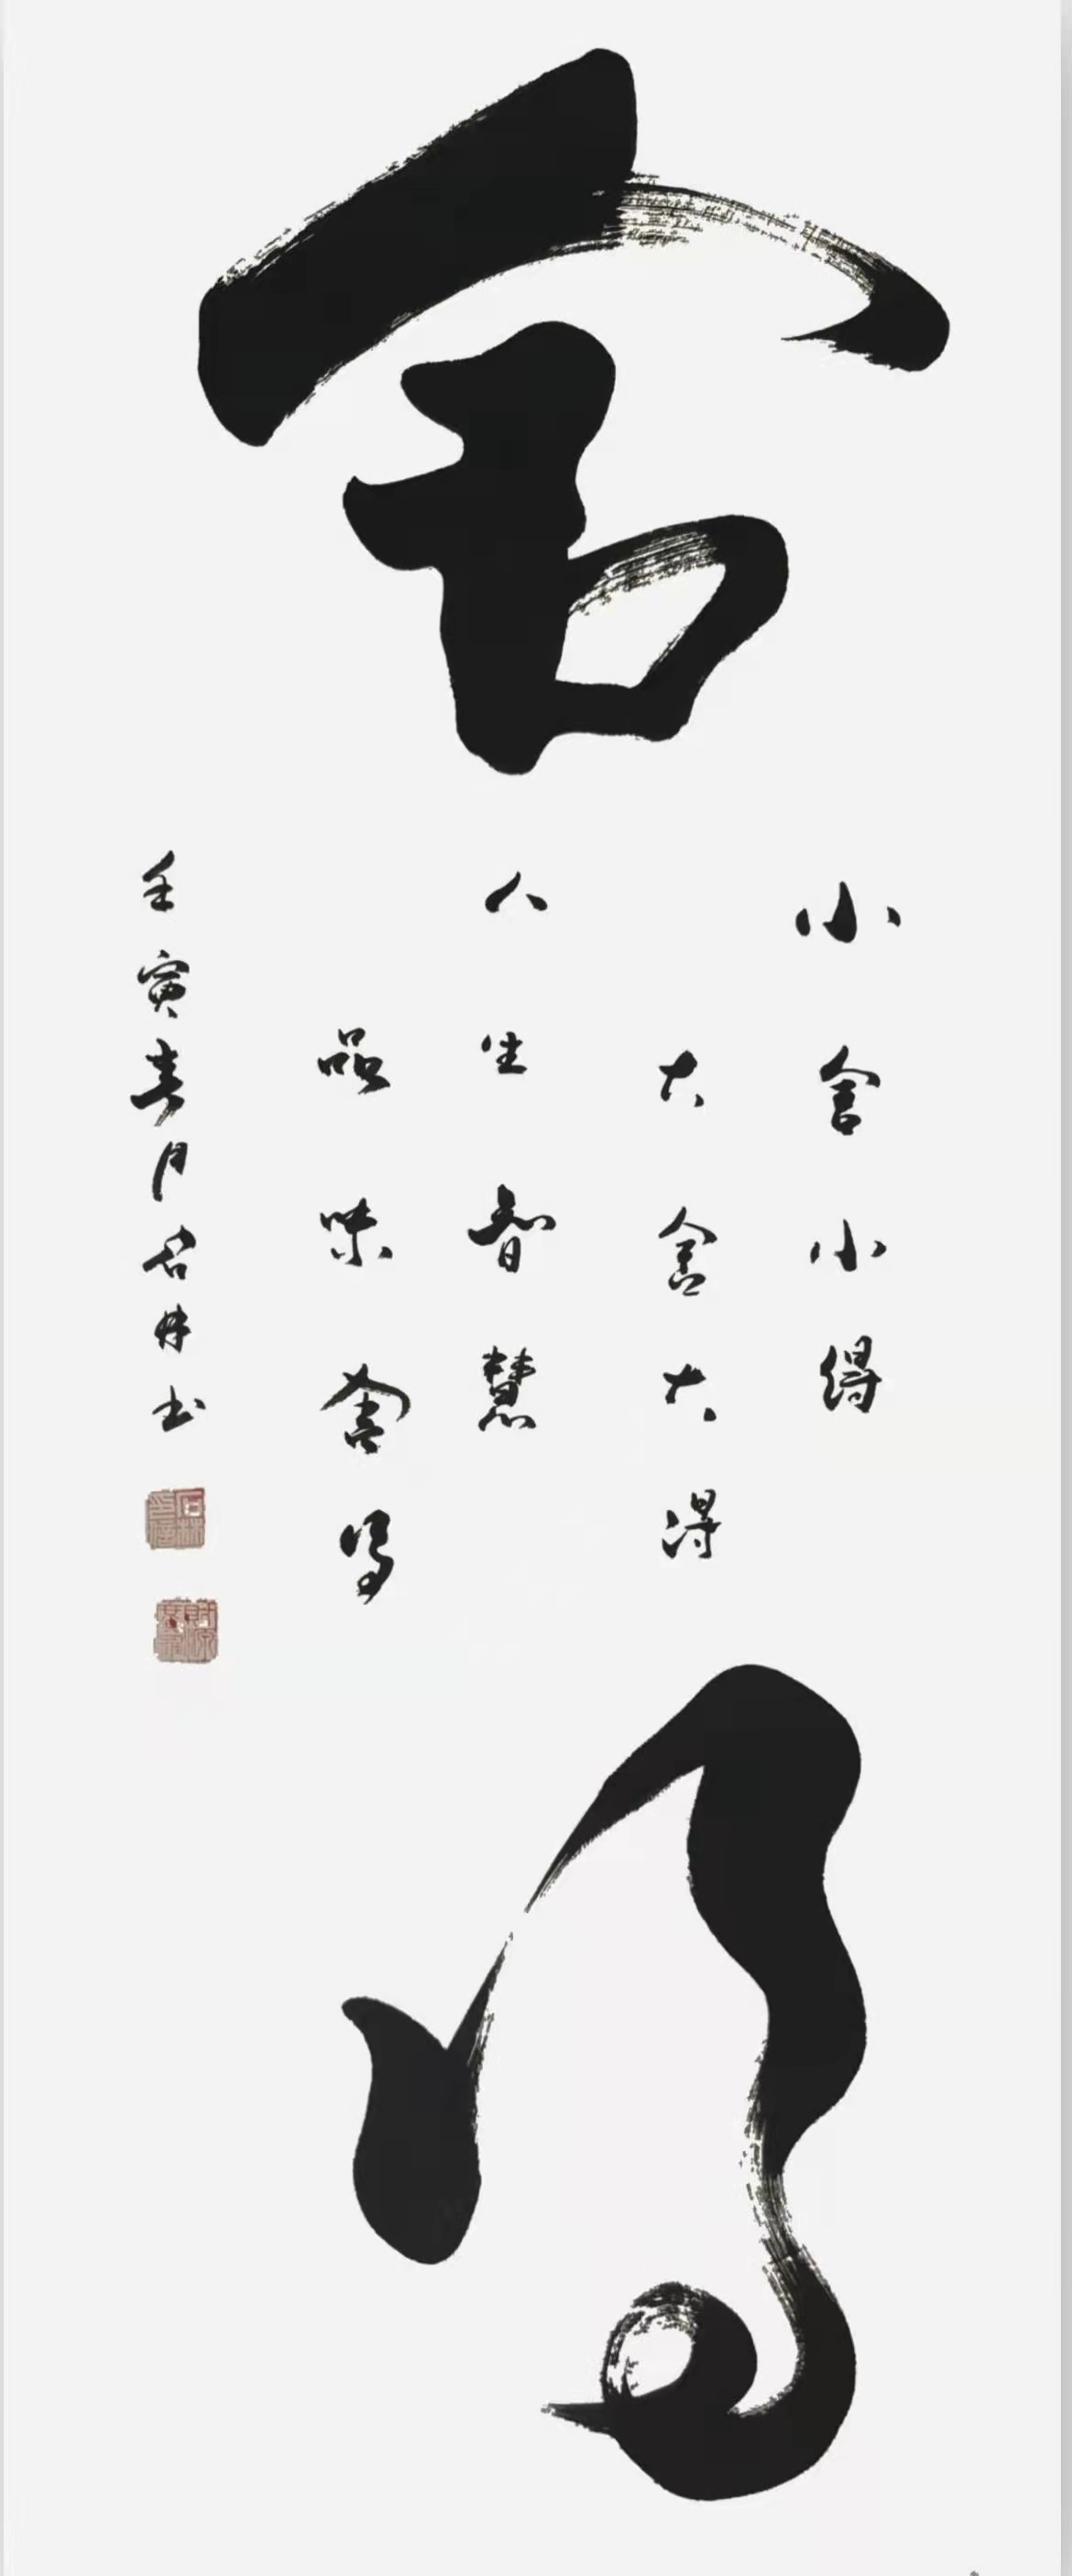 舍
得
小舍小得
大舍大得
人生智慧
品味舍得
壬寅春月石林书